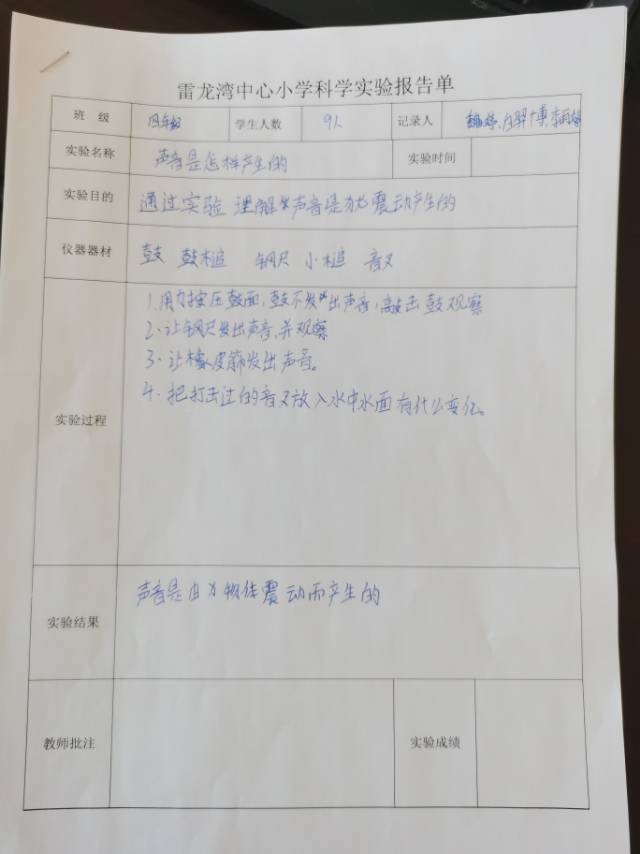 雷龙湾中心小学科学实验报告单
班 级 四年级 学生人数 9人 记录人
实验名称 声音是怎样产生的 实验时间
实验目的 通过实验 理解 声音是 震动产生的
仪器器材 鼓 鼓槌 钢尺 小槌 音叉
1.用力按压鼓面,鼓不发 出声音,敲击鼓观察
2.让钢尺发出声音,并观察
3.让橡皮筋发出声音。
实验过程 4.把打击过的音叉放入水中水面有什么变化。
声音是由 物体震动而产生的
实验结果
教师批注 实验成绩